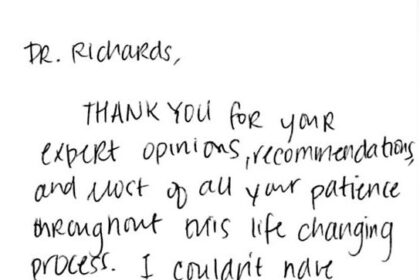 DR. Richards,
THANK YOU for your
expert opinions, recommendations,
and most of all your patience
throughout this life changing
process. I couldn't have